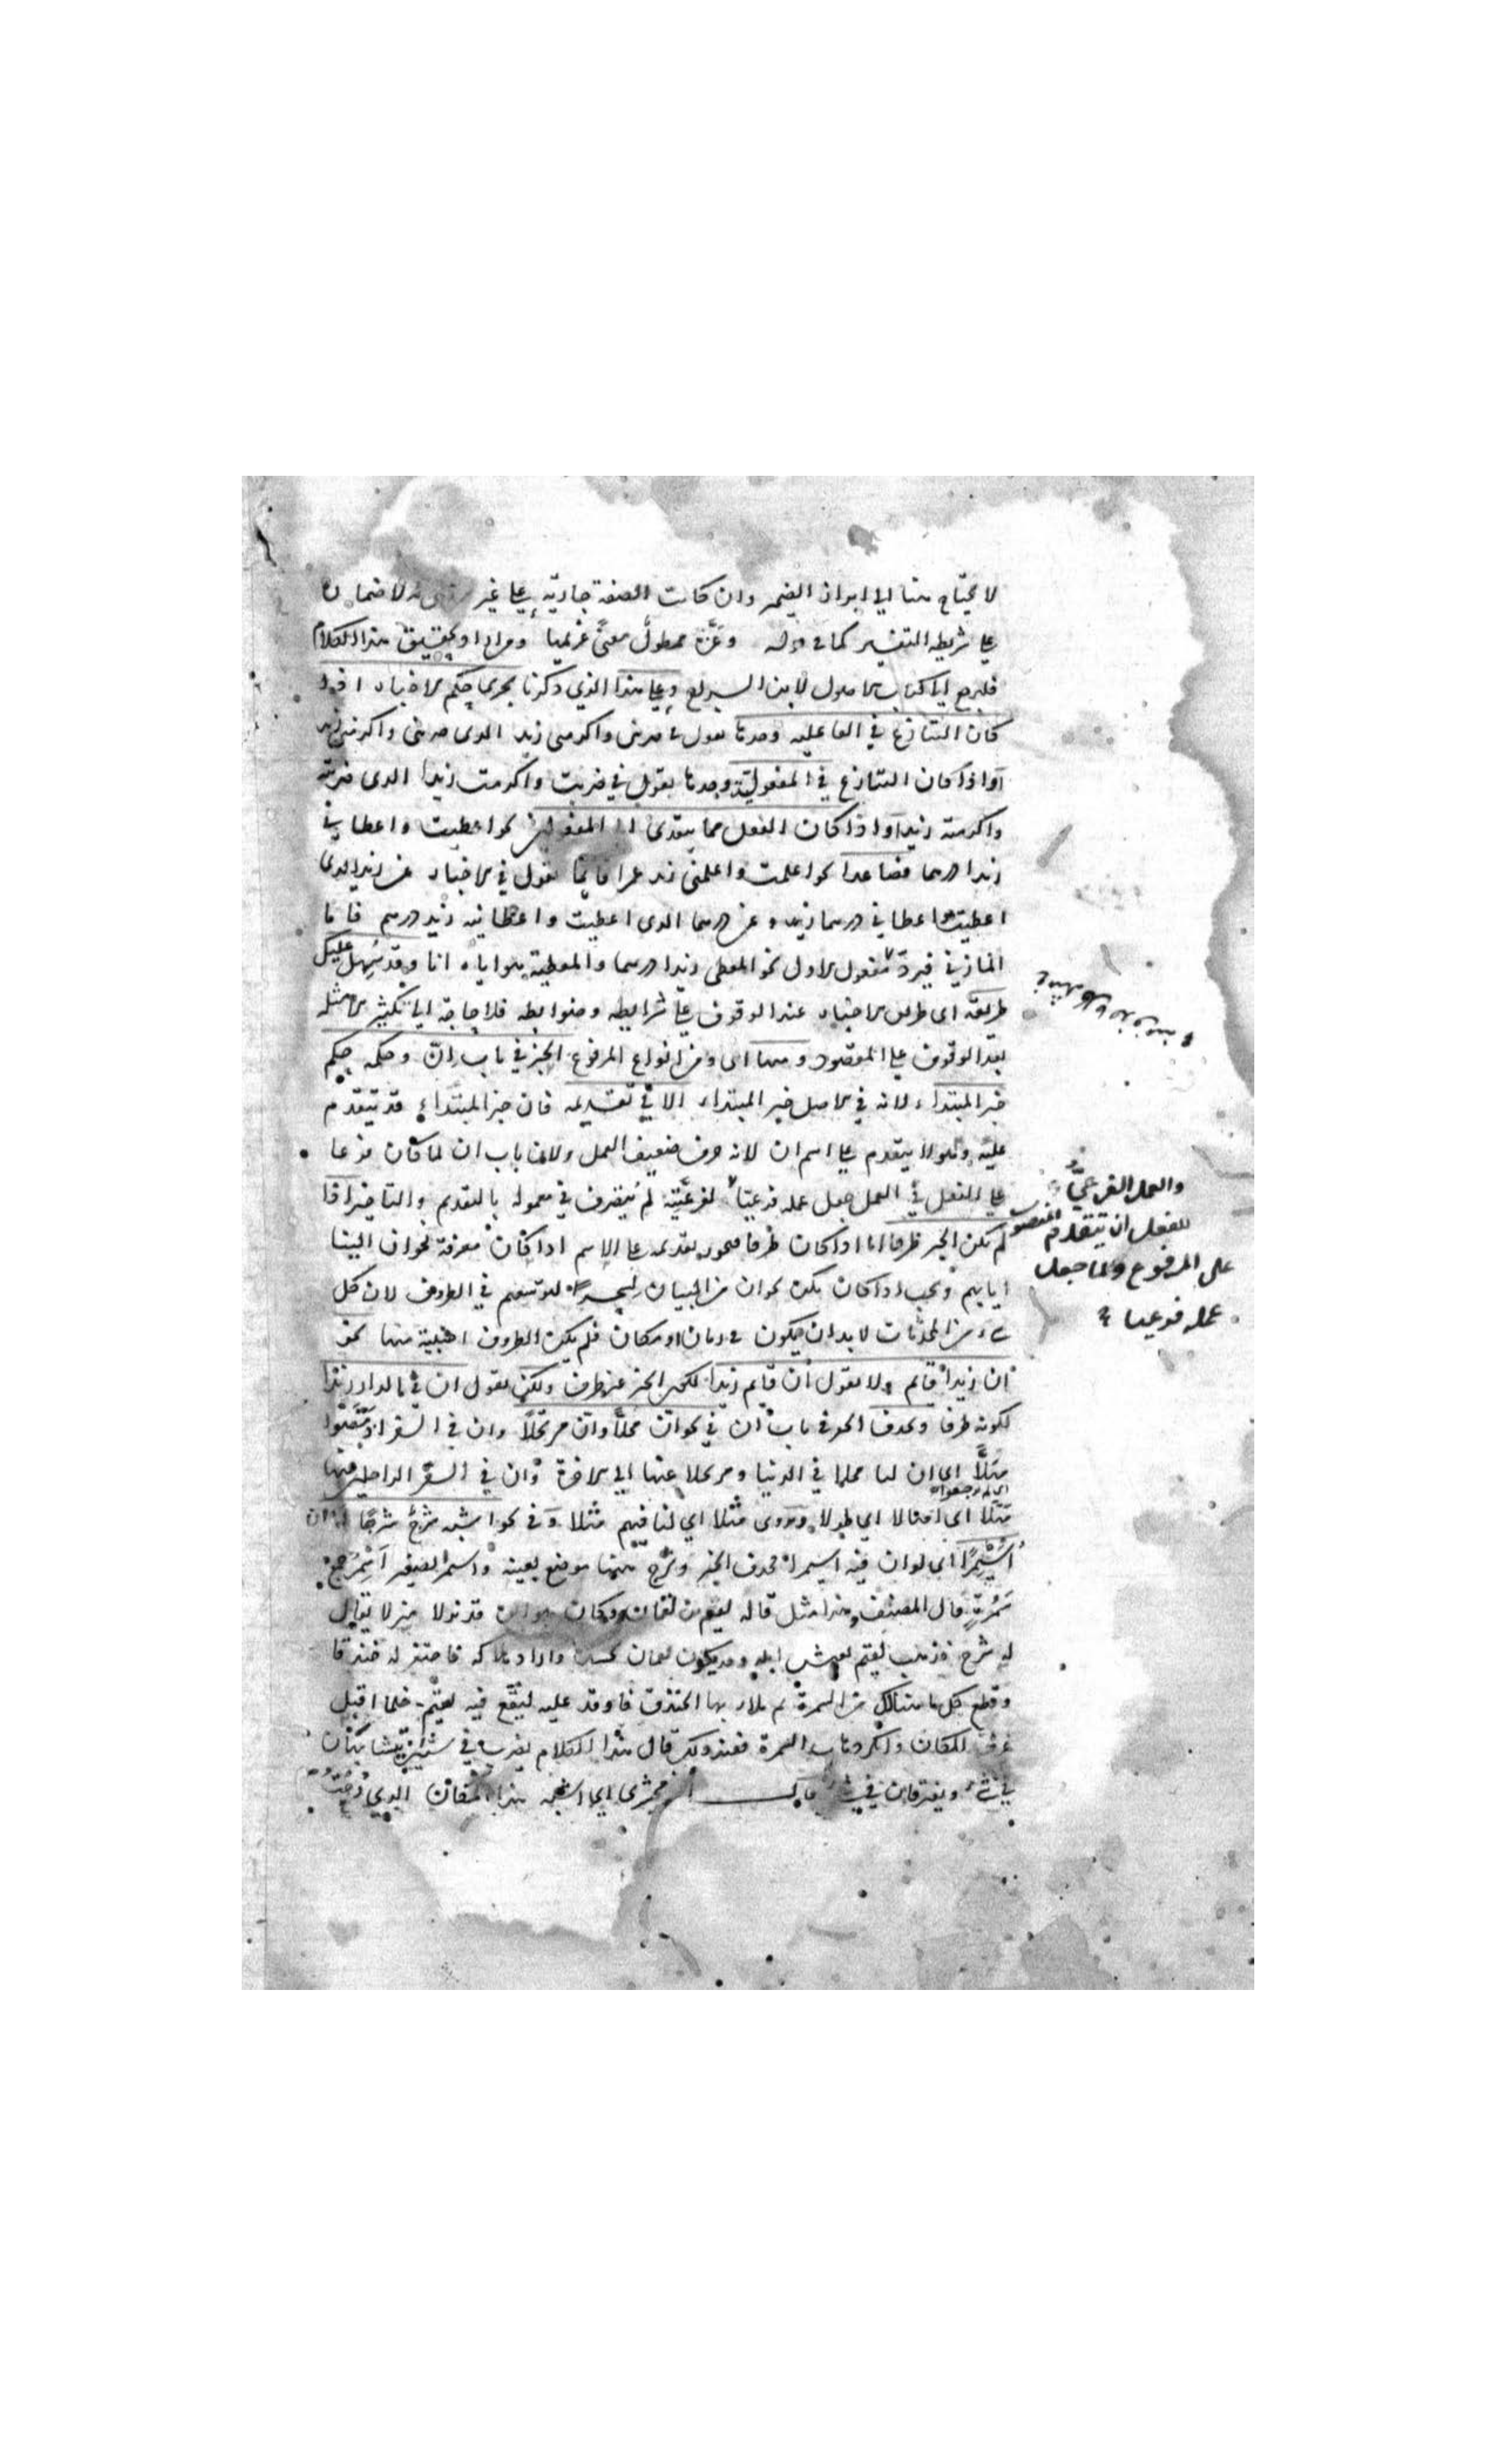 لا يحتاج هنا الى ابراز الضمير وان كانت الصفة جارية على غير لا ضمار
على شريطه التفسير كما في قوله وعزّة ممطولٌ معنّىً غريمها ومن اراد تحقيق هذا الكلام
فليرجع الى كتاب الاصول لابن السراج وعلى هذا الذي ذكرنا يجرى حكم الاخبار اذا
كان التنازع في الفاعليه وحدها تقول في ضربنى واكرمنى زيد الذى ضربنى واكرمنى زيد
او اذا كان التنازع في المفعولية وحدها تقول في ضربت واكرمت زيدا الذى ضربته
واكرمته زيد او اذا كان الفعل مما يتعدى الى المفعولين نحو اعطيت واعطاني
زيدا درهما فصاعدا نحو اعلمت واعلمنى زيد عمرا قائما تقول في الاخبار عن زيد الذى
اعطيت واعطاني درهما زيد وعن درهما الذى اعطيت واعطانيه زيد درهم فاما
المازني فيردّ مفعول الاول نحو المعطى زيدا درهما والمعطيه هو اياه انا وقد سُهل عليك
طريقه اى طريق الاخبار عند الوقوف على شرايطه وضوابطه فلا حاجة الى تكثير الامثله
بعد الوقوف على المقصود ومنها اى ومن انواع المرفوع الخبر في باب انّ وحكمه حكم
خبر المبتداء لانه في الاصل خبر المبتداء الا في تقديمه فان خبر المبتداء قد يتقدم
عليه وهو لا يتقدم على اسم ان لانه حرف ضعيف العمل ولان باب ان لما كان فرعا
على الفعل في العمل جعل عمله فرعيا لفرعيّته لم يتصرف في معموله بالتقديم والتاخير اذا
لم يكن الخبر ظرفا اما اذا كان ظرفا فيجوز تقديمه على الاسم اذا كان معرفة نحو ان الينا
ايابهم ويجب اذا كان نكرة نحو ان من البيان لسحرا لتوسعهم في الظروف لان كل
شيء من المحدثات لا بد ان يكون في زمان او مكان فلم يكن الظروف اجنبية منها نحو
ان زيدا قايم ولا تقول ان قايم زيدا لكون الخبر غير ظرف ولكن تقول ان في الدار زيدا
لكونه ظرفا ويحذف الخبر في باب ان في نحو انّ محلاًّ وانّ مرتحلاً وان في السفر اذ مضوا
مَهَلاً اى ان لنا محلا في الدنيا ومرتحلا عنها الى الاخرة وان في السفر الراحلين عنها
اى لم يرجعوا
مثلا اى امهالا اى طولا ويروى مثلا اى لنا فيهم مثلا وفي نحو اشبه شرجٌ شرجًا لو ان
اُسَيْمِرًا اى لو ان فيه اسيمرا فحذف الخبر وشرج ههنا موضع بعينه واسيمر تصغير اَسْمُر جمع
سَمُرة قال المصنف هذا مثل قاله لقيم بن لقمان وكان هو وابوه قد نزلا منزلا يقال
له شرج فذهب لقيم يعيش ابله وقد يكون لقمان حسده واراد هلاكه فاحتفر له خندقا
وقطع كل ما هنالك من السمرة ثم ملاء بها الخندق فاوقد عليه ليقع فيه لقيم فلما اقبل
عرف المكان وانكر ذهاب السمرة فعند ذلك قال هذا الكلام يضرب في شيئين يتشابهان
في شيء ويفترقان في شيء قال الزمخشرى اى اشبه هذا المكان الذي
والعمل الفرعيُّ
للفعل ان يتقدم المنصوب
على المرفوع ولما جعل
عمله فرعيا